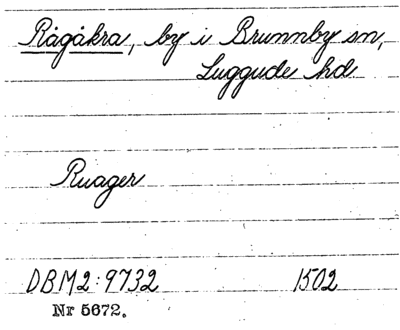 Rågåkra, by i Brunnby sn,
Luggude hd
Ruager
DBM2:9732 1502
Nr 5672.